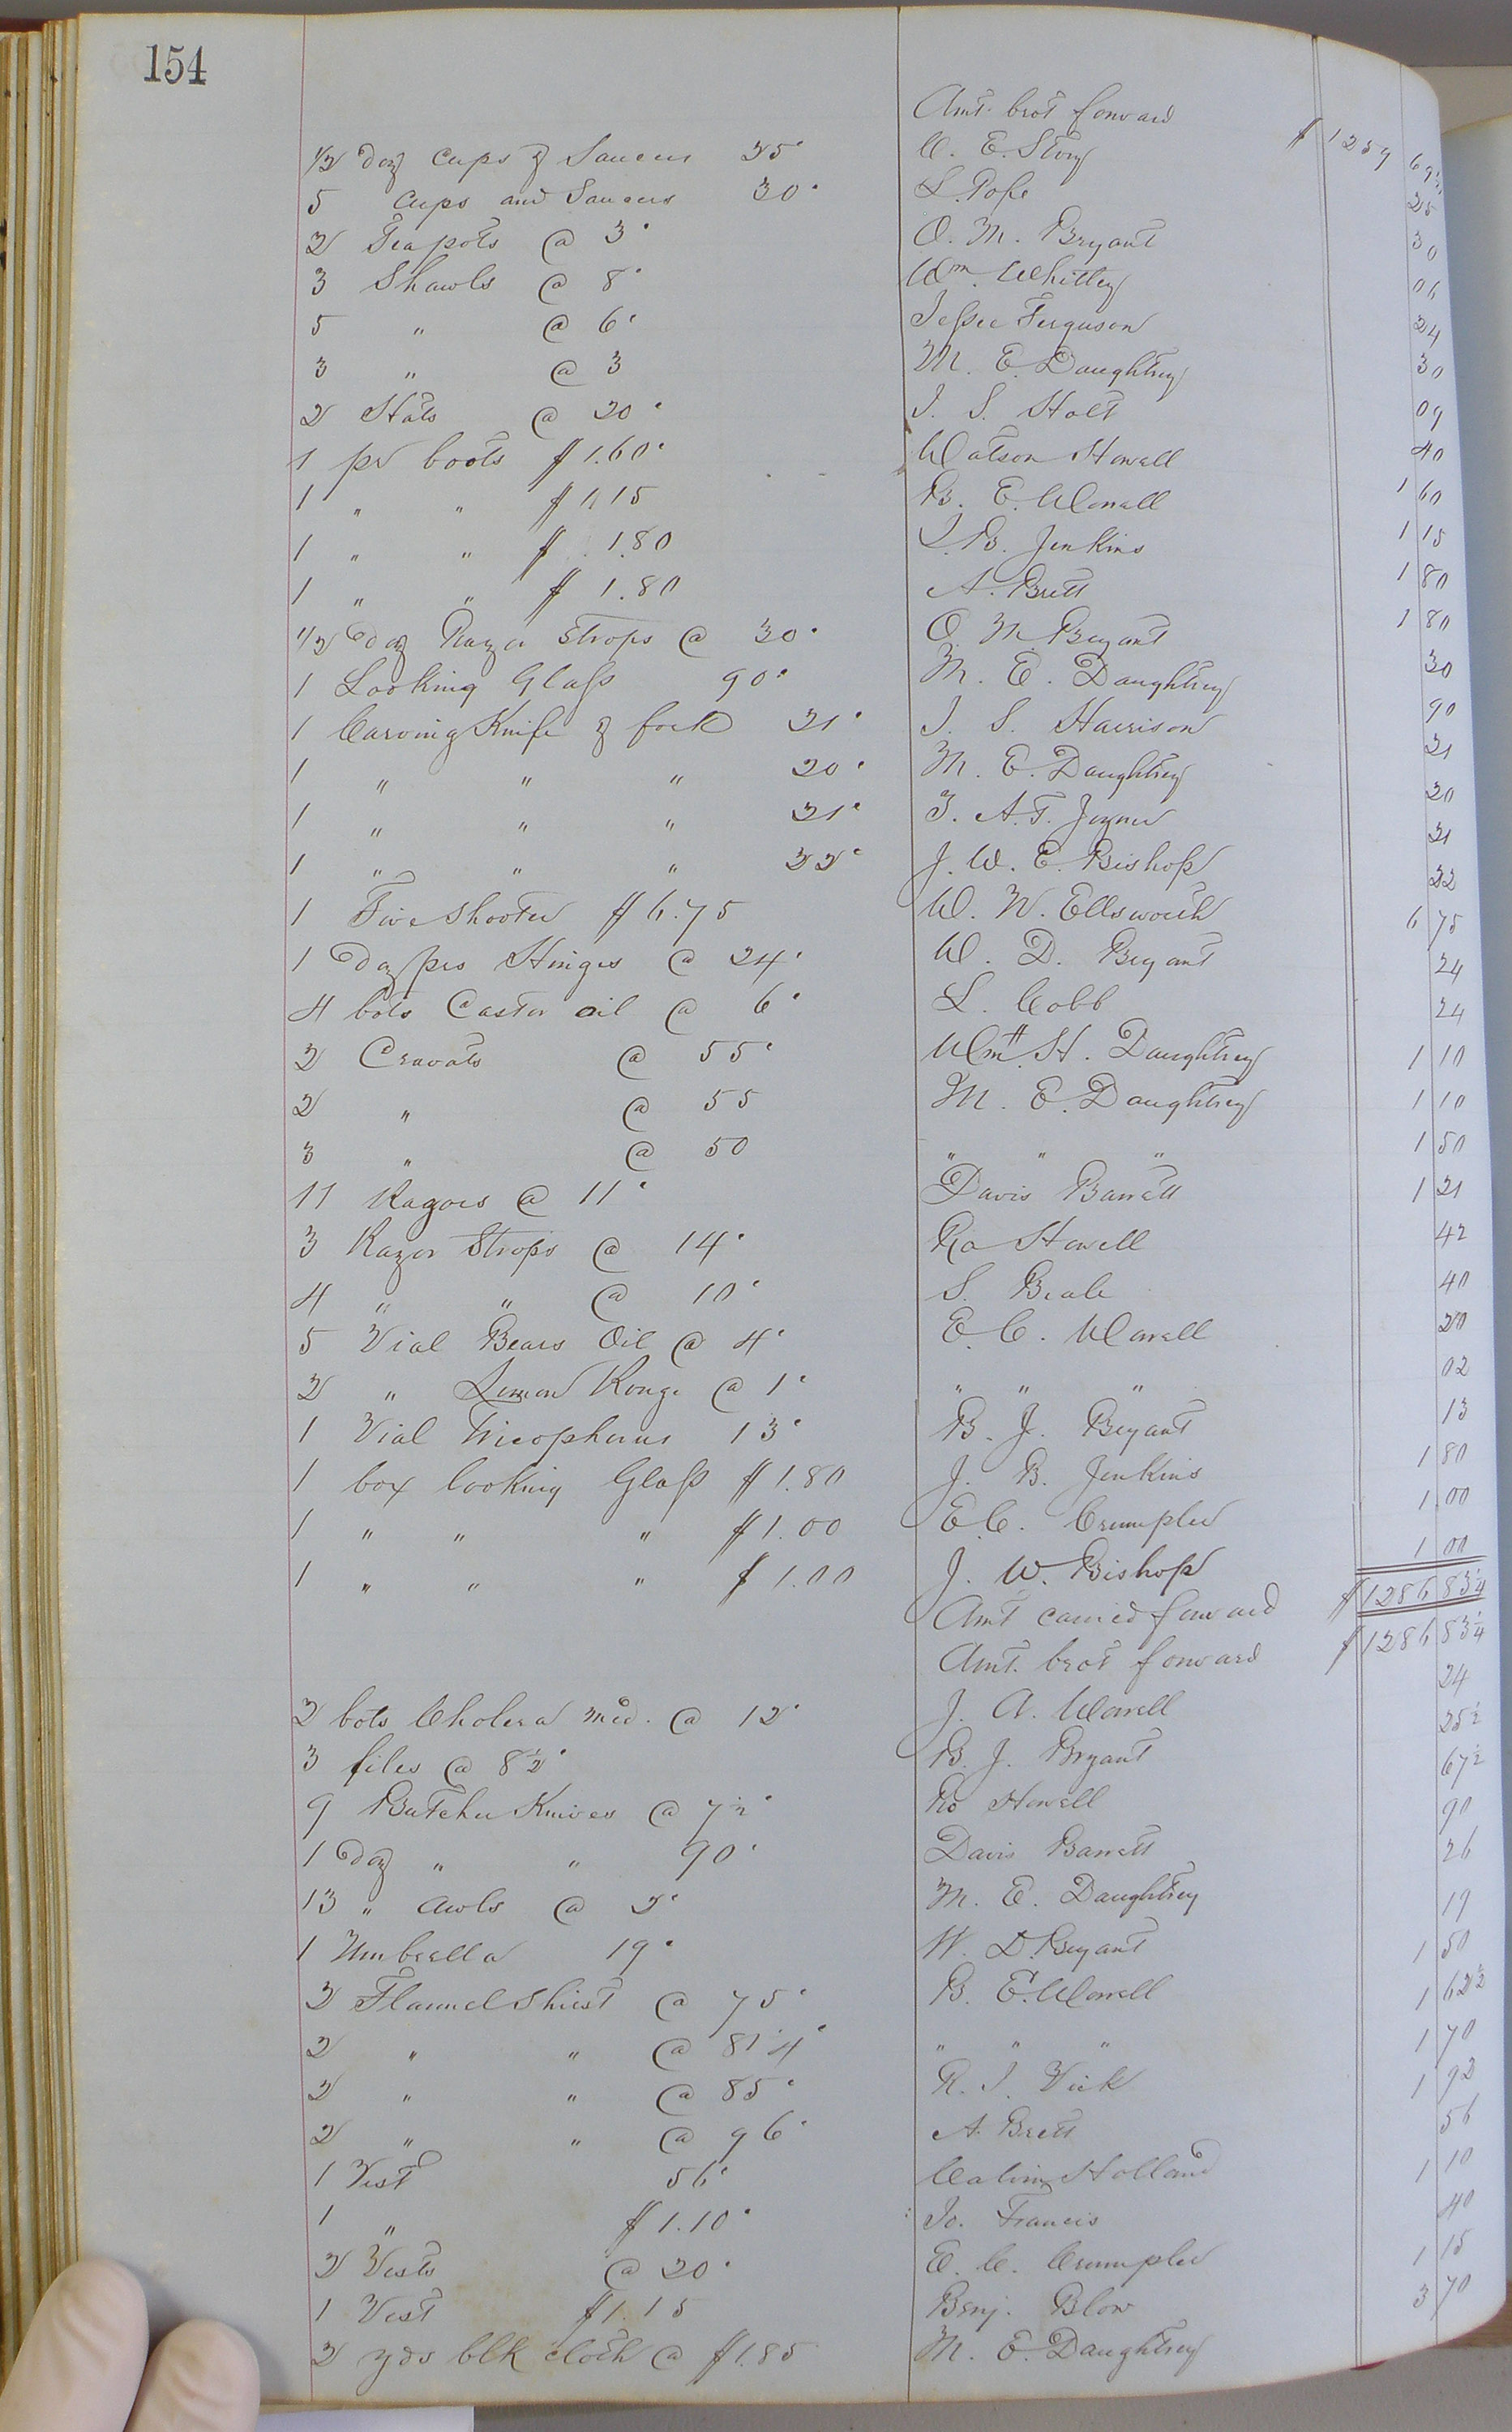 154
Amt. brot forward $ 1259 69 1/4
1/2 Doz Cups & Saucers 25c W. E. Story 25
5 Cups and Saucers 30c L. Pope 30
2 Tea pots @ 3c O. M. Bryant 06
3 Shawls @ 8c Wm. Whitley 24
5 " @ 6c Jessee Ferguson 30
3 " @ 3 M. E. Daughtrey 09
2 Hats @ 20c J. S. Holt 40
1 pr boots $1.60c Watson Howell 1 60
1 " " $1.15 B. E. Worrell 1 15
1 " " $1.80 J. B. Jenkins 1 80
1 " " $1.80 A. Brett 1 80
1/2 Doz Razor Strops @ 30c O. M. Bryant 30
1 Looking Glass 90c M. E. Daughtrey 90
1 Carving Knife & fork 21c J. S. Harrison 21
1 " " " 20c M. E. Daughtrey 20
1 " " " 21c T. A. T. Joyner 21
1 " " " 22c J. W. E. Bishop 22
1 Five Shooter $6.75 W. W. Ellsworth 6 75
1 Doz prs Hinges @ 24c W. D. Bryant 24
4 bots Castor oil @ 6c L. Cobb 24
2 Cravats @ 55c Wm. H. Daughtrey 1 10
2 " @ 55 M. E. Daughtrey 1 10
3 " @ 50 " " " 1 50
11 Razors @ 11c Davis Barrett 1 21
3 Razor Strops @ 14c Ro Howell 42
4 " " @ 10c S. Beale 40
5 Vial Bears Oil @ 4c E. C. Worrell 20
2 " Lemon Rouge @ 1c " " " 02
1 Vial Tricopherus 13c B. J. Bryant 13
1 box looking Glass $1.80 J. B. Jenkins 1 80
1 " " " $1.00 E. C. Crumpler 1 00
1 " " " $1.00 J. W. Bishop 1 00
Amt carried forward $1286 83 1/4
Amt. brot forward $1286 83 1/4
2 bots Cholera med. @ 12c J. A. Worrell 24
3 files @ 8 1/2c B. J. Bryant 25 1/2
9 Butcher Knives @ 7 1/2c Ro Howell 67 1/2
1 Doz " " 90c Davis Barrett 90
13 " Awls @ 2c M. E. Daughtrey 26
1 Umbrella 19c W. D. Bryant 19
2 Flannel Shirst @ 75c B. E. Worrell 1 50
2 " " @ 81 1/4c " " " 1 62 1/2
2 " " @ 85c R. J. Vick 1 70
2 " " @ 96c A. Brett 1 92
1 Vest 56c Holland 56
1 " $1.10c Jo. Francis 1 10
2 Vests @ 20c E. C. Crumpler 40
1 Vest $1.15 Benj. Blow 1 15
2 yds blk cloth @ $1.85 M. E. Daughtrey 3 70